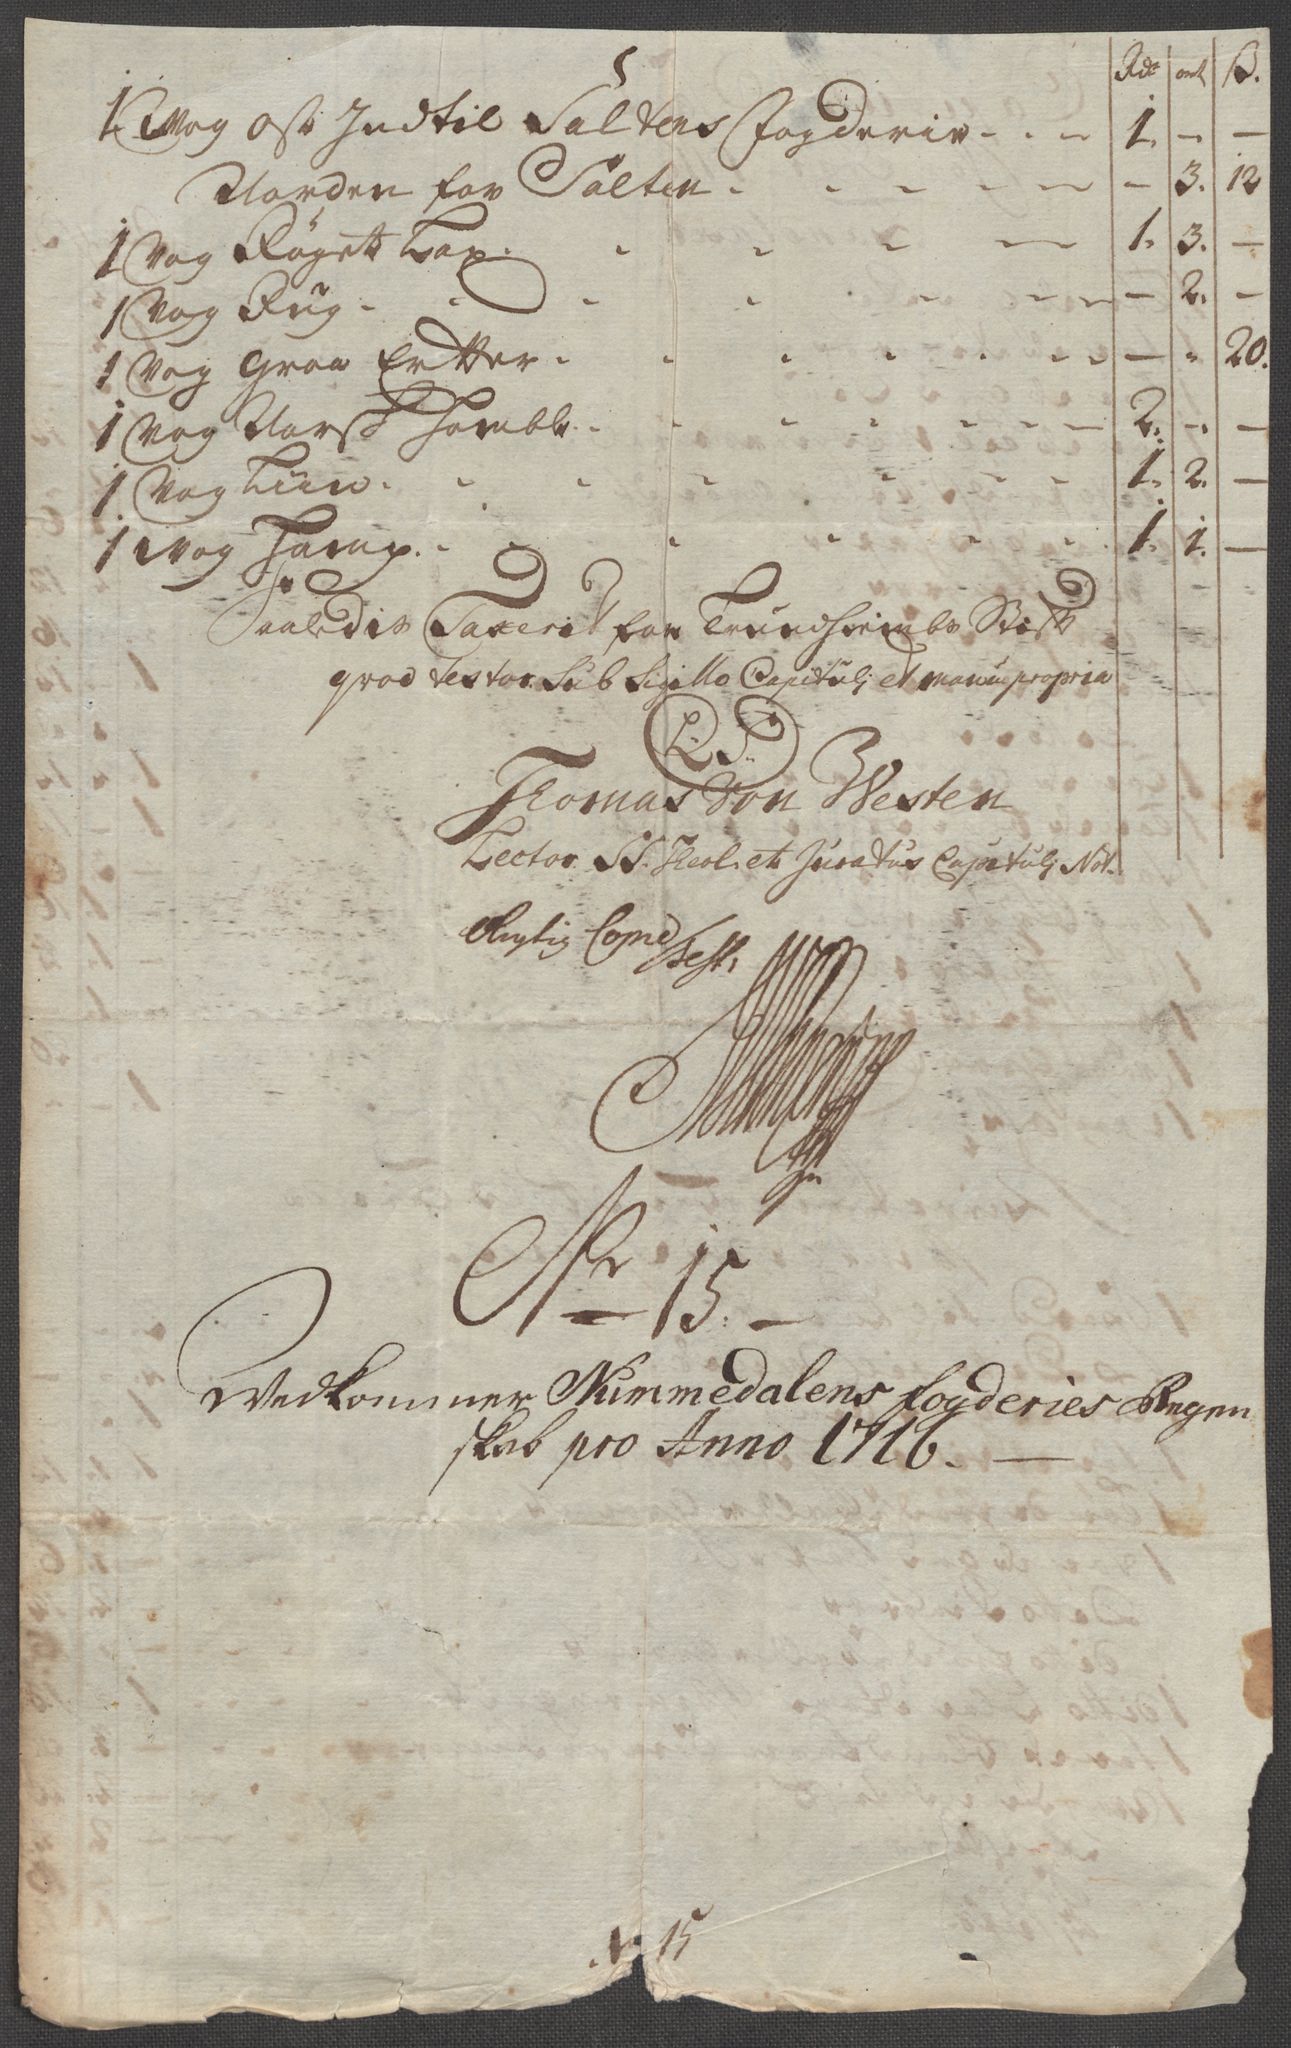 Rdr ort ß.
1 Wog Ost Indtil Saltens Fogderie - - - 1. - -
Norden for Salten - - - - 3. 12
1 Wog Röget Lax - - - 1. 3. -
1 Wog Rug - - - - 2. -
1 Wog Graa Ertter - - - - - 20.
1 Wog Norsk Homble - - - 2. - -
1 Wog Liin - - - 1. 2. -
1 Wog Hamp - - - 1. 1. -
Saaledis Taxerit for Trundhiembs Stift
qvod testor Sub Sigillo Capitulj et manu propria
L. S.
Thomas von Westen
Lector SS. Theol. et Juratus Capitulj Not.
Rigtig Copie
Test.
No 15. -
Vedkommer Nummedalens fogderies Regen
skab pro Anno 1716. -
No 15